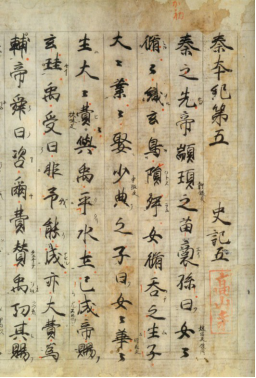 秦本紀第五 史記五
秦之先帝顓頊之苗裔孫曰女〻
脩〻織玄鳥隕卵女脩吞之生子
大〻業〻娶少典之子曰女〻華〻
生大〻費〻與禹平水土已成帝賜
玄珪禹受曰非予能成亦大費爲
輔帝舜曰咨爾費賛禹功其賜